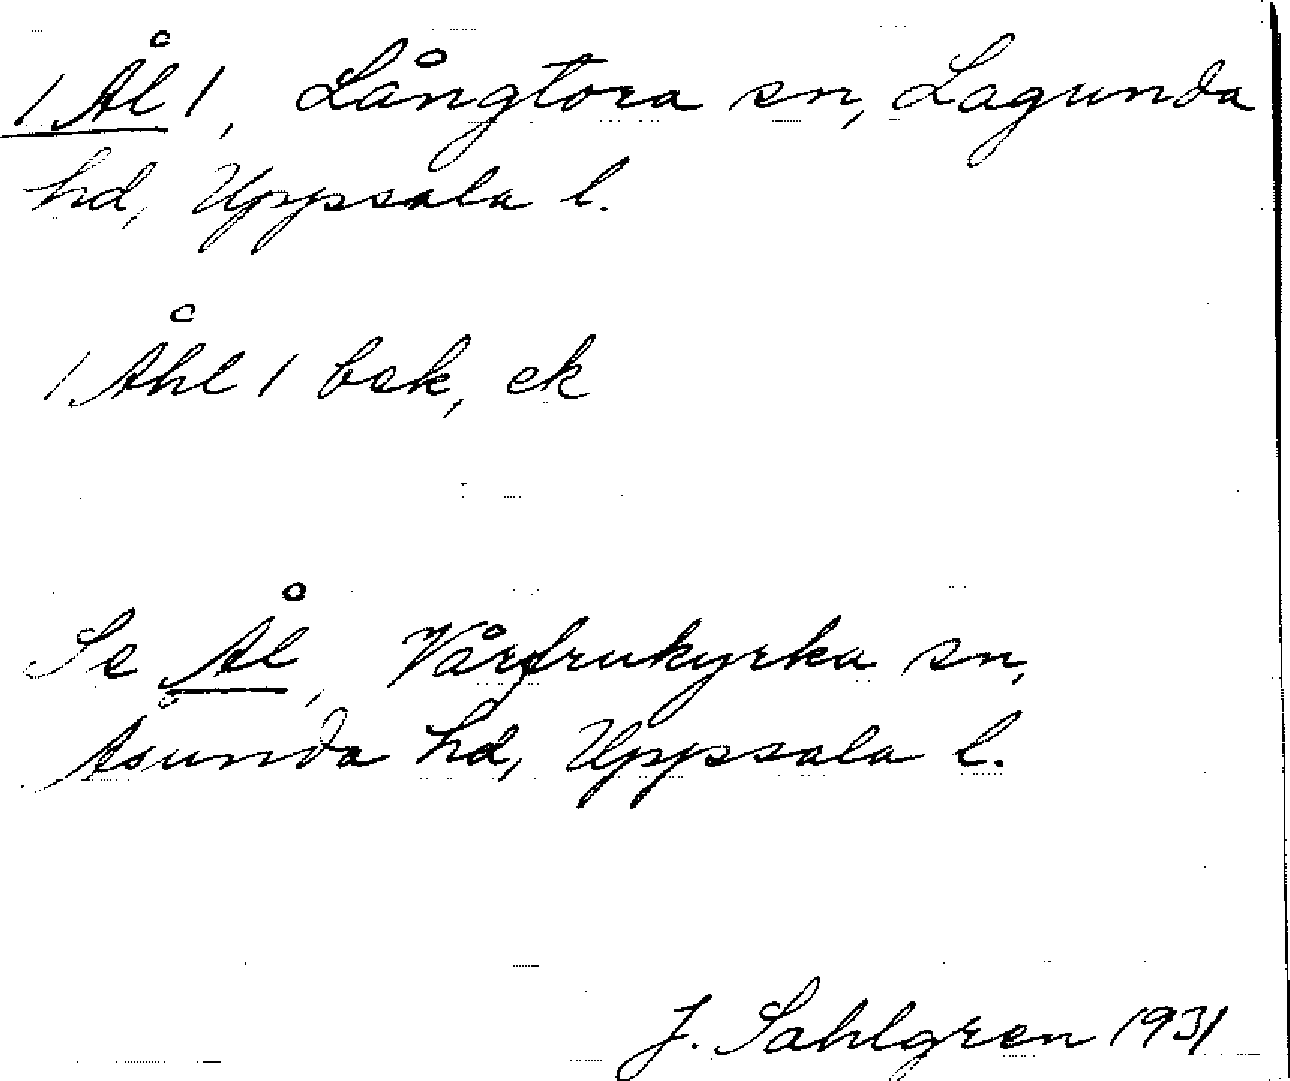 /Ål/, Långtora sn, Lagunda
hd, Uppsala l.
/Åhl/ bek, ek
Se Ål, Vårfrukyrka sn,
Åsunda hd, Uppsala l.
J. Sahlgren 1931